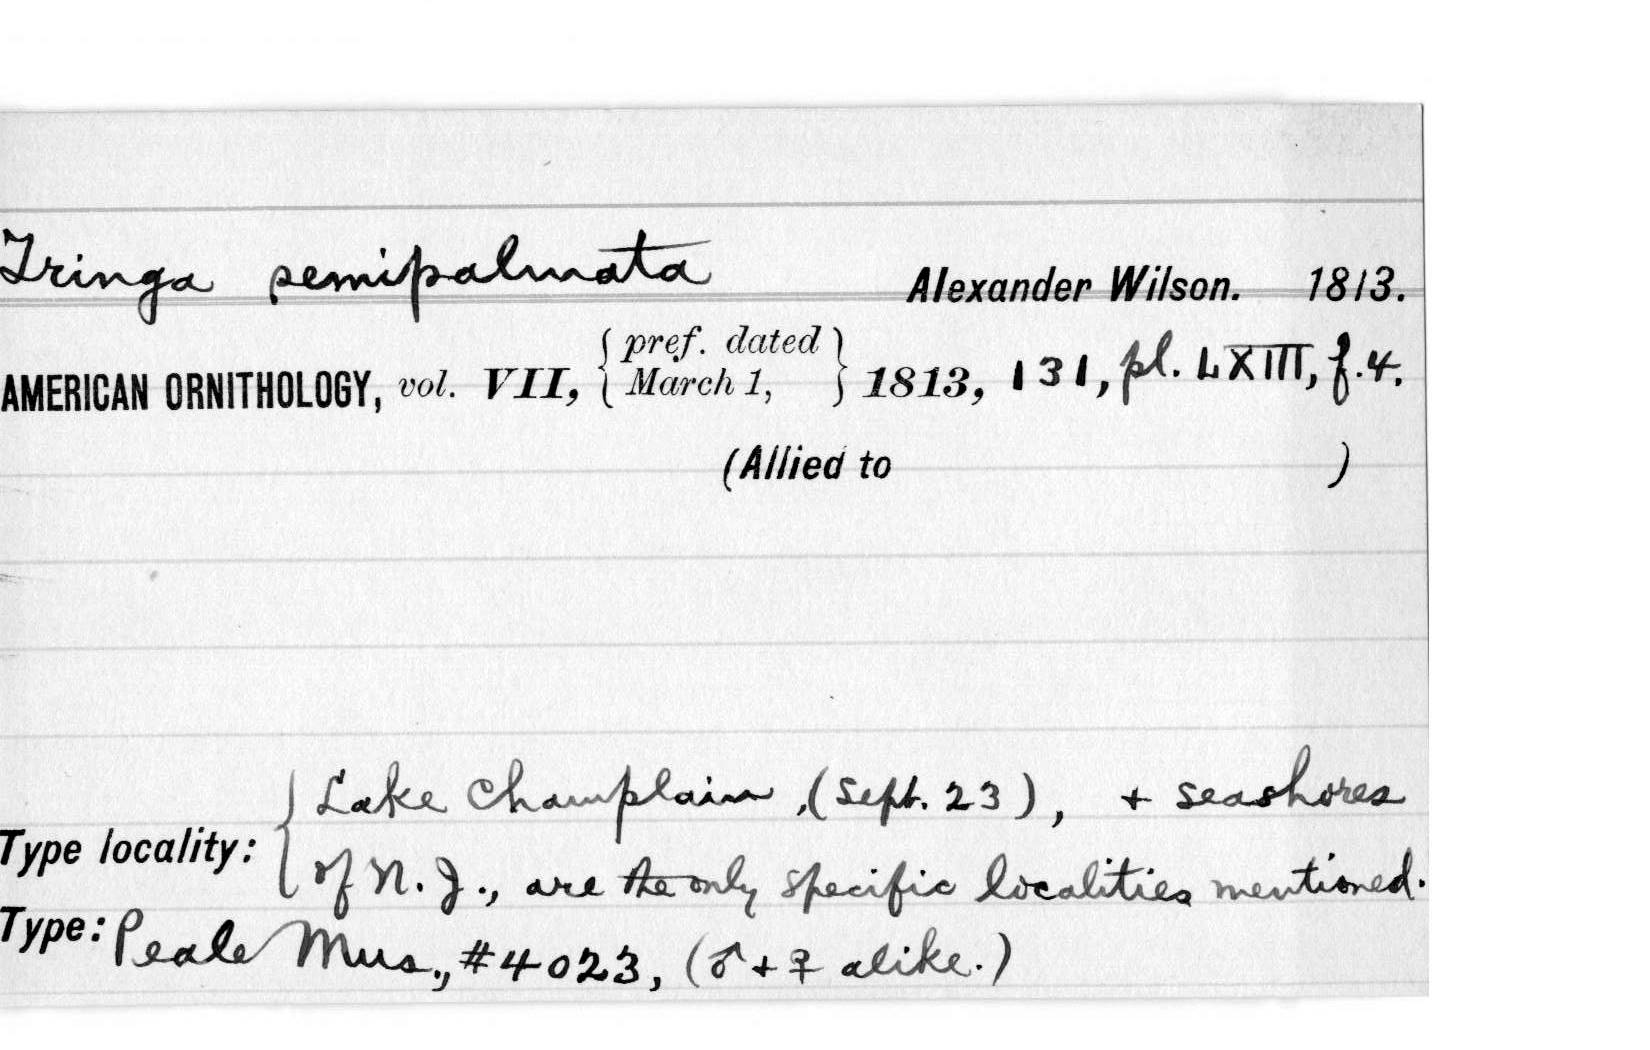 Tringa semipalmata Alexander Wilson. 1813.
AMERICAN ORNITHOLOGY, vol. VII, { pref. dated March 1, } 1813, 131, pl. LXIII, f. 4.
(Allied to )
Type locality: { Lake Champlain, (Sept. 23), + seashores
of N. J., are the only specific localities mentioned.
Type: Peale Mus., #4023, (♂ + ♀ alike.)